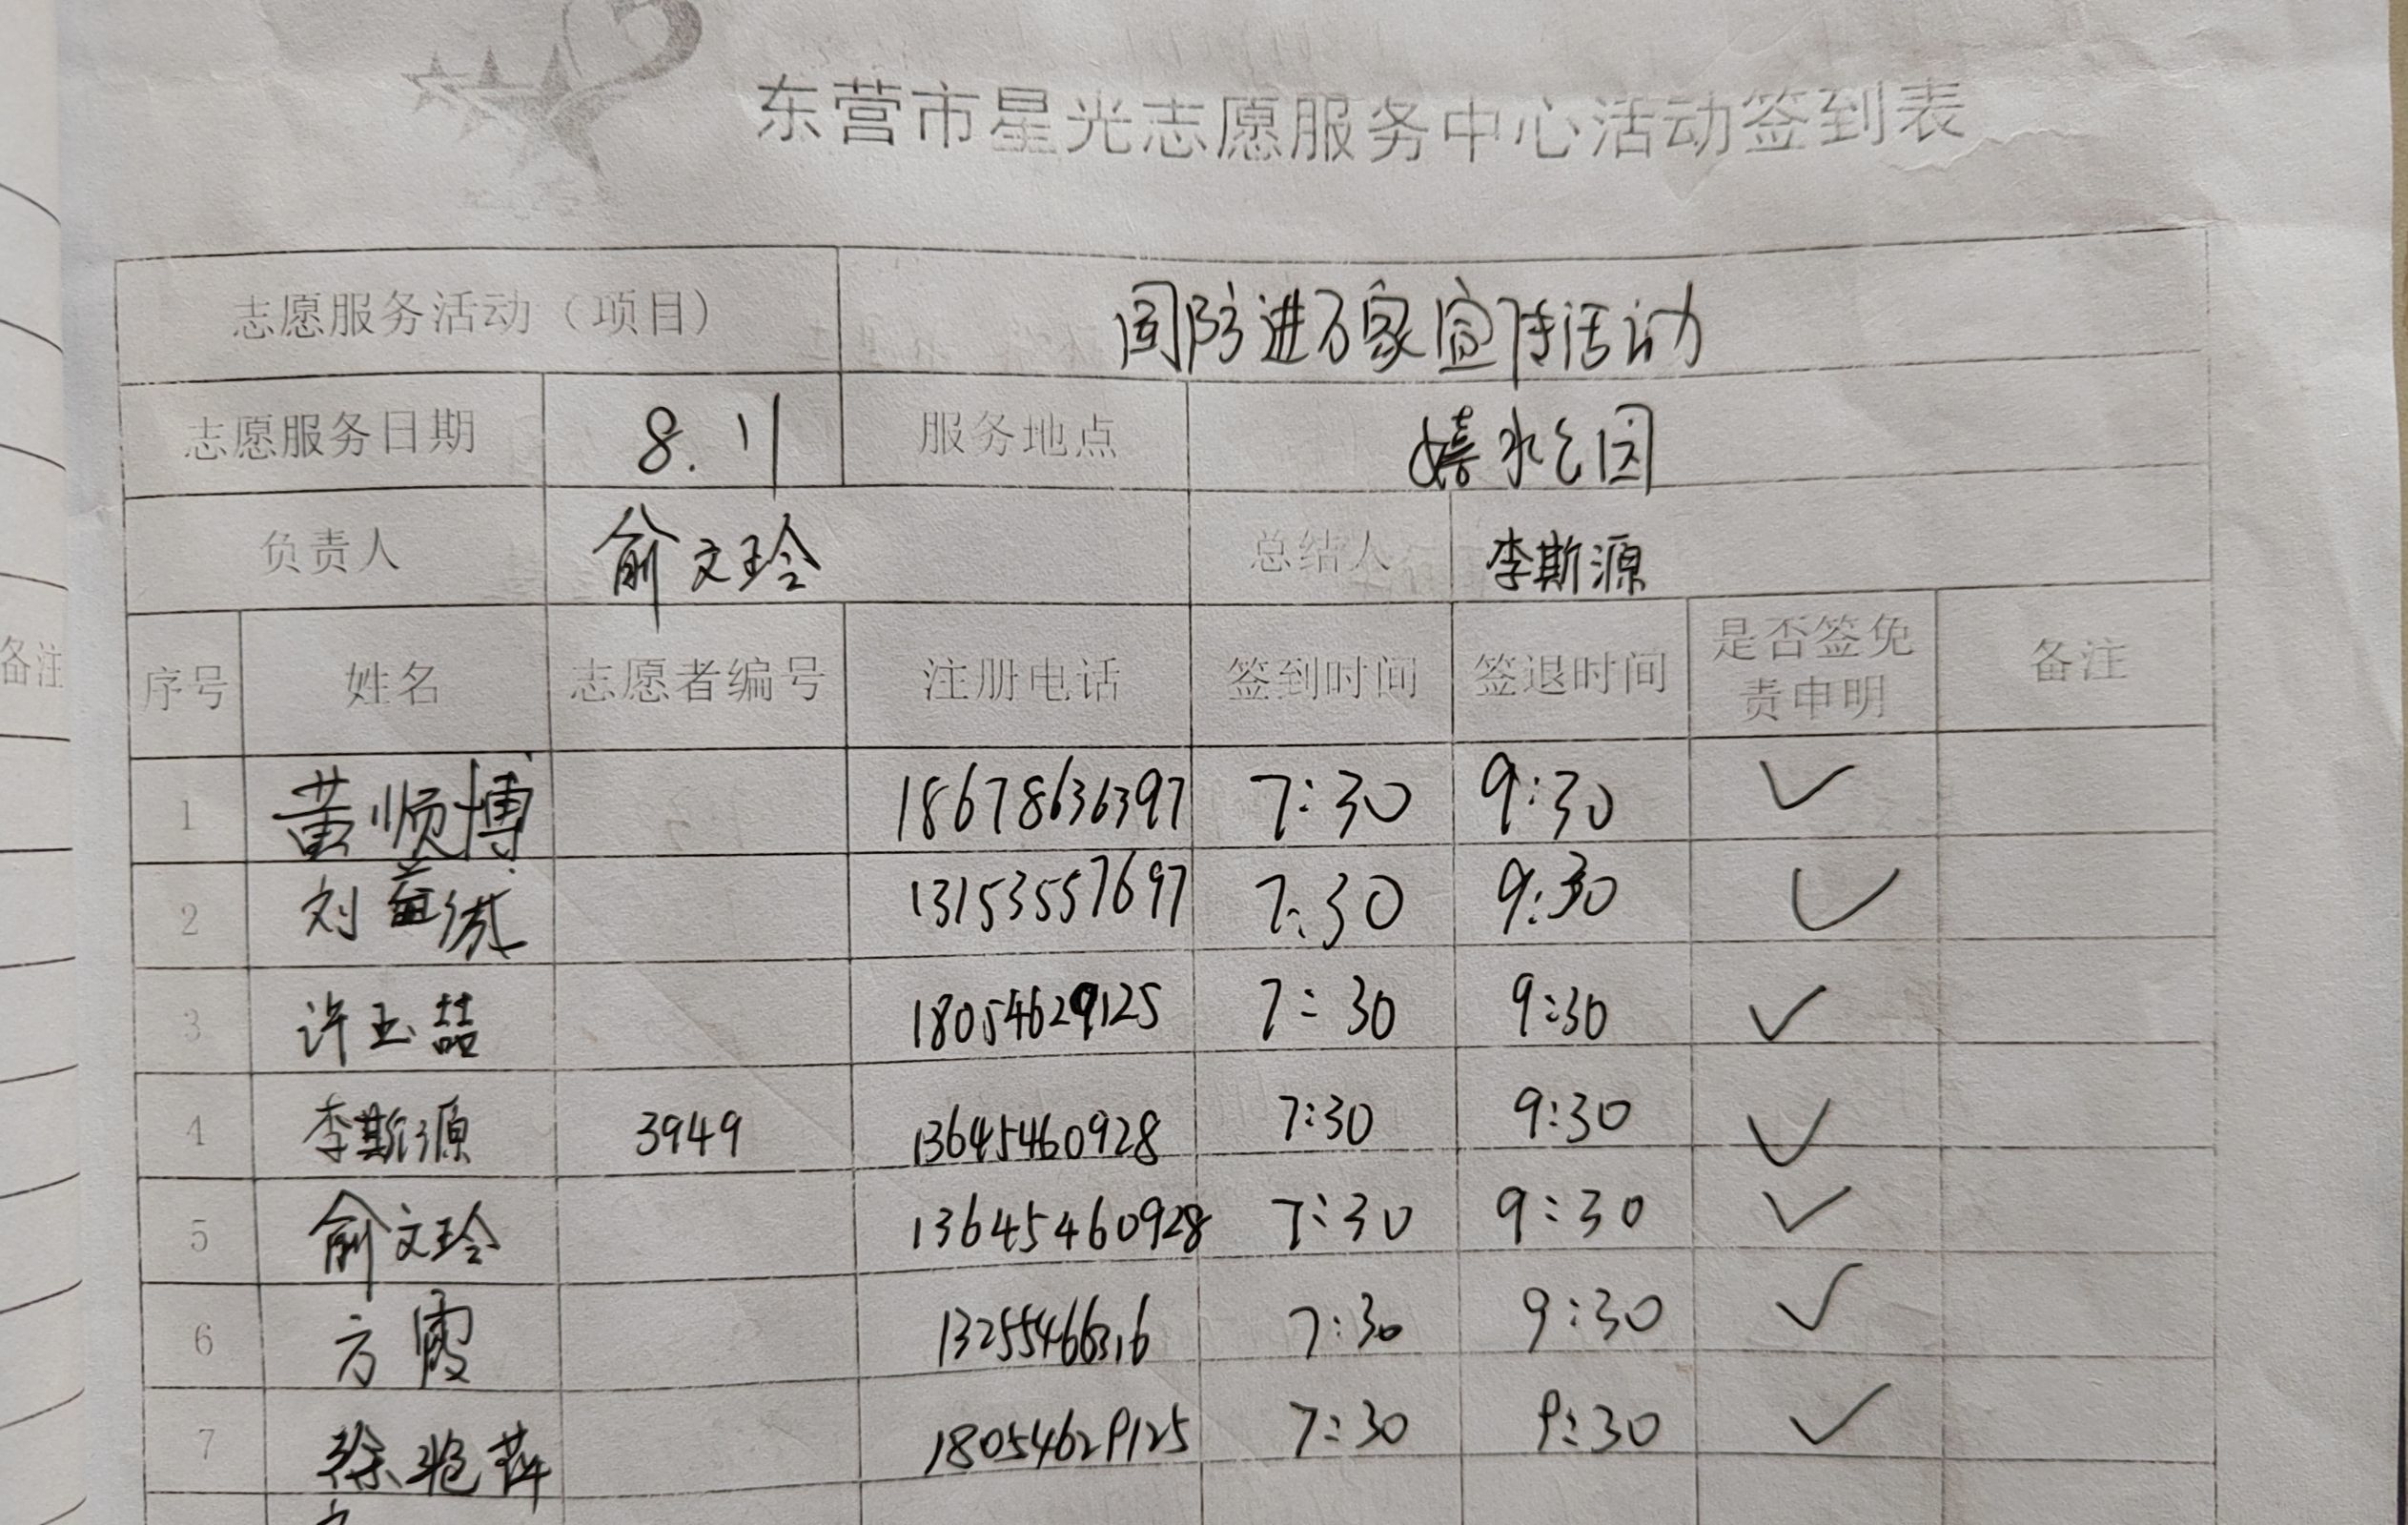 东营市星光志愿服务中心活动签到表
志愿服务活动（项目） 国防进万家宣传活动
志愿服务日期 8.11 服务地点 嬉水公园
负责人 俞文玲 总结人 李斯源
序号 姓名 志愿者编号 注册电话 签到时间 签退时间 是否签免责申明 备注
1 黄顺博 18678636397 7:30 9:30 ✓
2 刘 13153557697 7:30 9:30 ✓
3 许玉喆 18054629125 7:30 9:30 ✓
4 李斯源 3949 13645460928 7:30 9:30 ✓
5 俞文玲 13645460928 7:30 9:30 ✓
6 方霞 13255466316 7:30 9:30 ✓
7 徐艳萍 18054629125 7:30 9:30 ✓
备注